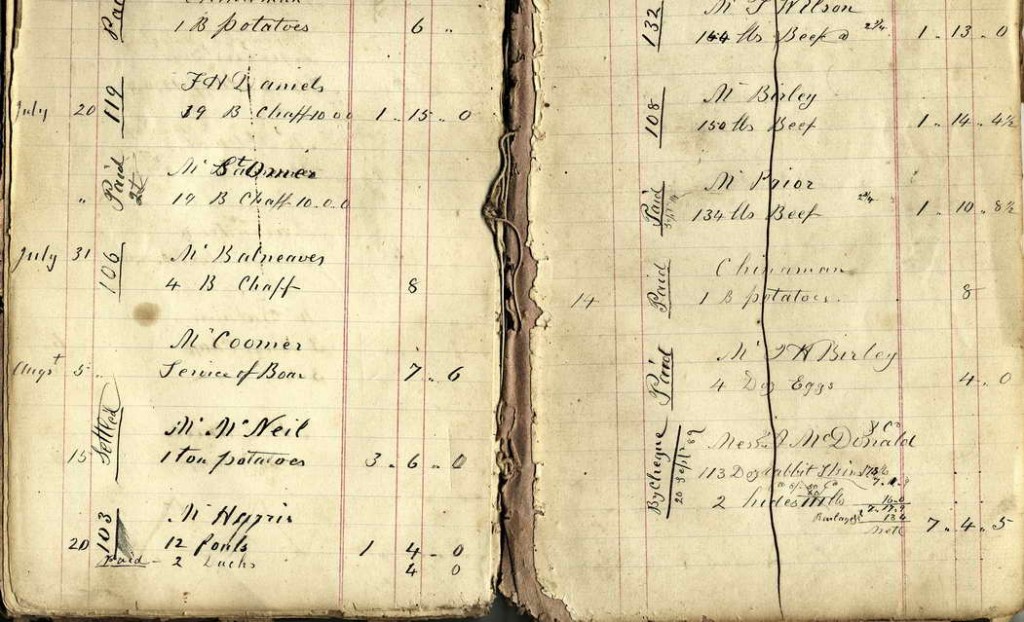 Paid
1 B potatoes 6 "
July 20 119 F H Daniels
39 B Chaff 10.0.0 1 . 15 . 0
" Paid Mr St Omer
19 B Chaff 10.0.0
July 31 106 Mr Balneaves
4 B Chaff 8
Mr Coomer
Augst 5 Service of Boar 7 . 6
Settled Mr McNeil
15 1 ton potatoes 3 . 6 . 0
103 Mr Harris
20 12 fowls 1 4 . 0
Paid 2 Ducks 4 0
132 Mr J Wilson
144 lbs Beef @ 2¾ 1 . 13 . 0
108 Mr Birley
150 lbs Beef 1 . 14 . 4½
Paid Mr Prior
134 lbs Beef 2¾ 1 . 10 . 8½
Paid Chinaman
14 1 B potatoes 8
Paid Mr J H Birley
4 Doz Eggs 4 . 0
By Cheque 20 Sept 89 Messrs J McDonald & Co
113 Doz rabbit skins
2 hides
7 . 4 . 5